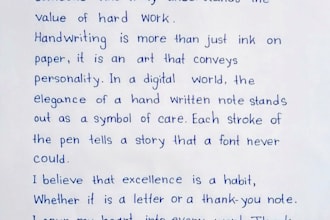 value of hard work.
Handwriting is more than just ink on
paper, it is an art that conveys
personality. In a digital world, the
elegance of a hand written note stands
out as a symbol of care. Each stroke of
the pen tells a story that a font never
could.
I believe that excellence is a habit,
Whether it is a letter or a thank-you note.